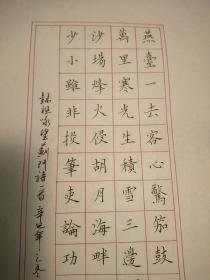 燕臺一去客心驚笳鼓
萬里寒光生積雪三邊
沙場烽火侵胡月海畔
少小雖非投筆吏論功
録祖咏望薊門詩一首 辛丑年之冬